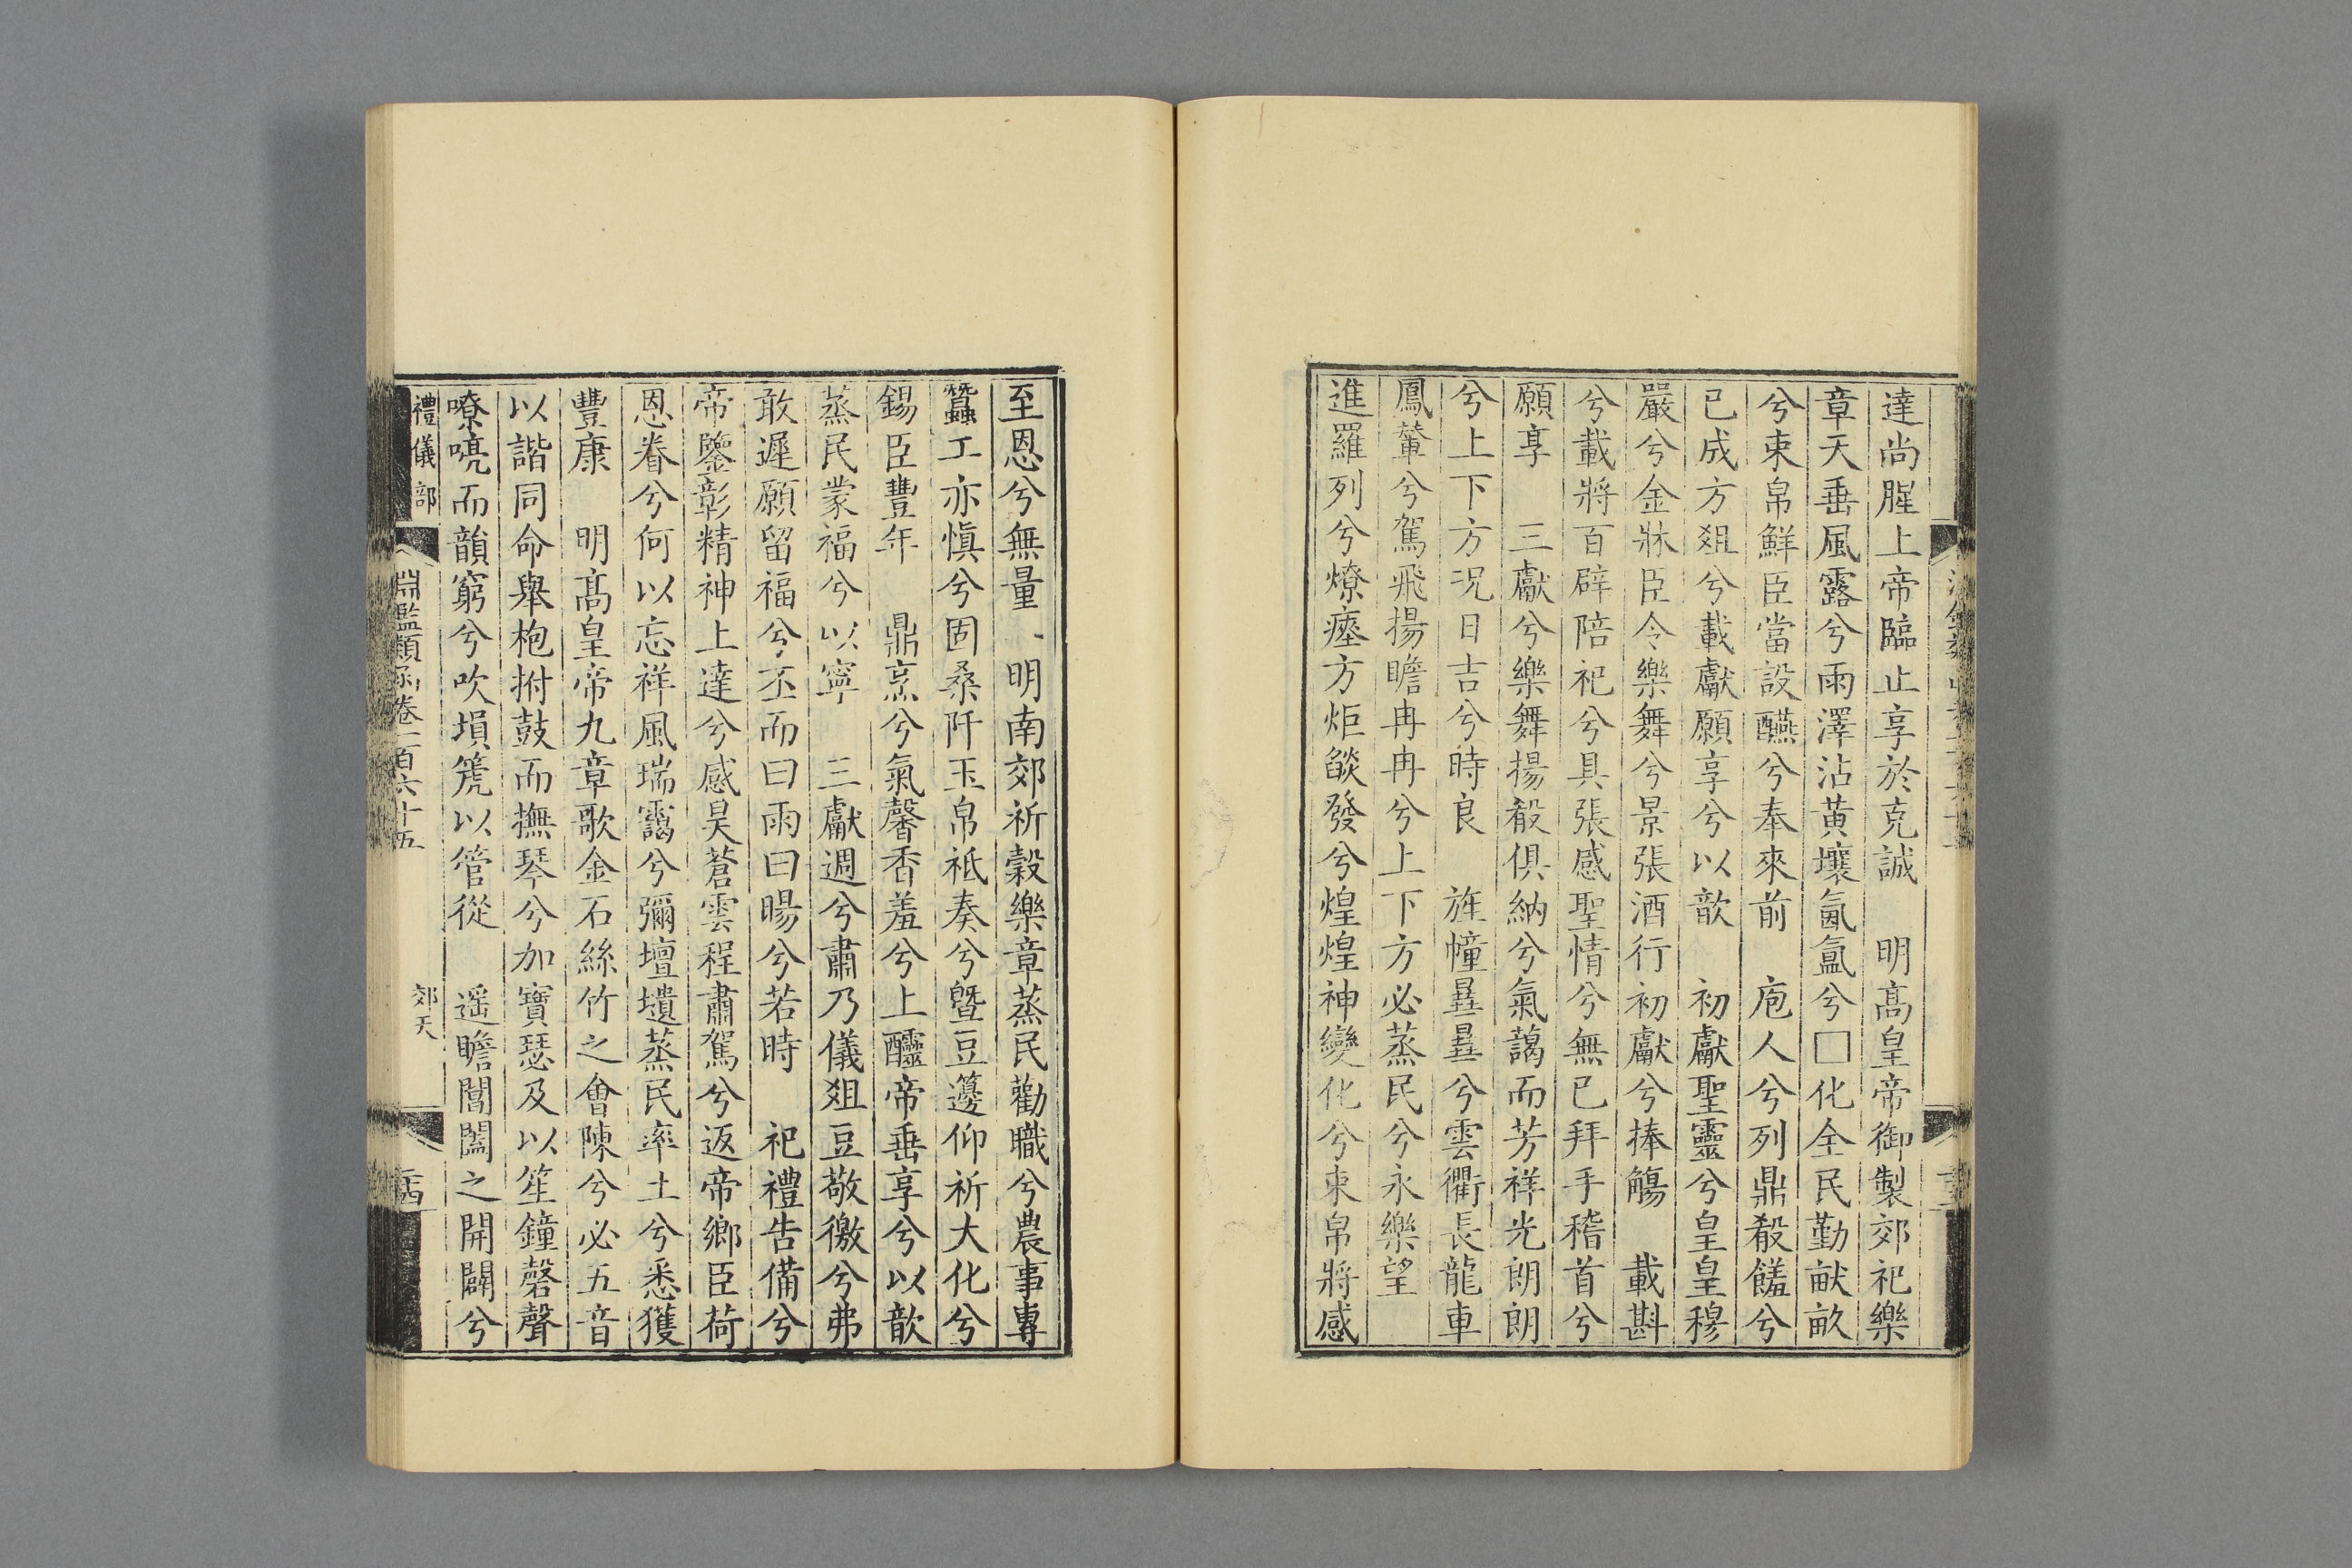 達尚腥上帝臨止享於克誠　明髙皇帝御製郊祀樂
章天垂風露兮雨澤沾黄壤氤氳兮□化全民勤畎畝
兮束帛鮮臣當設醼兮奉來前　庖人兮列鼎殽饈兮
已成方俎兮載獻願享兮以歆　初獻聖靈兮皇皇穆
嚴兮金牀臣令樂舞兮景張酒行初獻兮捧觴　載斟
兮載將百辟陪祀兮具張感聖情兮無已拜手稽首兮
願享　三獻兮樂舞揚殽俱納兮氣藹而芳祥光朗朗
兮上下方況日吉兮時良　旌幢曅曅兮雲衢長龍車
鳳輦兮駕飛揚瞻冉冉兮上下方必蒸民兮永樂望
進羅列兮燎瘞方炬燄發兮煌煌神變化兮束帛將感
至恩兮無量　明南郊祈榖樂章蒸民勸職兮農事專
蠶工亦愼兮固桑阡玉帛祗奏兮曁豆籩仰祈大化兮
錫臣豐年　鼎烹兮氣馨香羞兮上醽帝垂享兮以歆
蒸民蒙福兮以寧　三獻週兮肅乃儀俎豆敬徹兮弗
敢遲願留福兮丕而曰雨曰暘兮若時　祀禮告備兮
帝鑒彰精神上達兮感昊蒼雲程肅駕兮返帝鄉臣荷
恩眷兮何以忘祥風瑞靄兮彌壇壝蒸民率土兮悉獲
豐康　明髙皇帝九章歌金石絲竹之會陳兮必五音
以諧同命舉枹拊鼓而撫琴兮加寶瑟及以笙鐘磬聲
嘹喨而韻窮兮吹塤篪以管從　遥瞻閶闔之開闢兮
禮儀部
淵鑑類函卷一百六十五
郊天